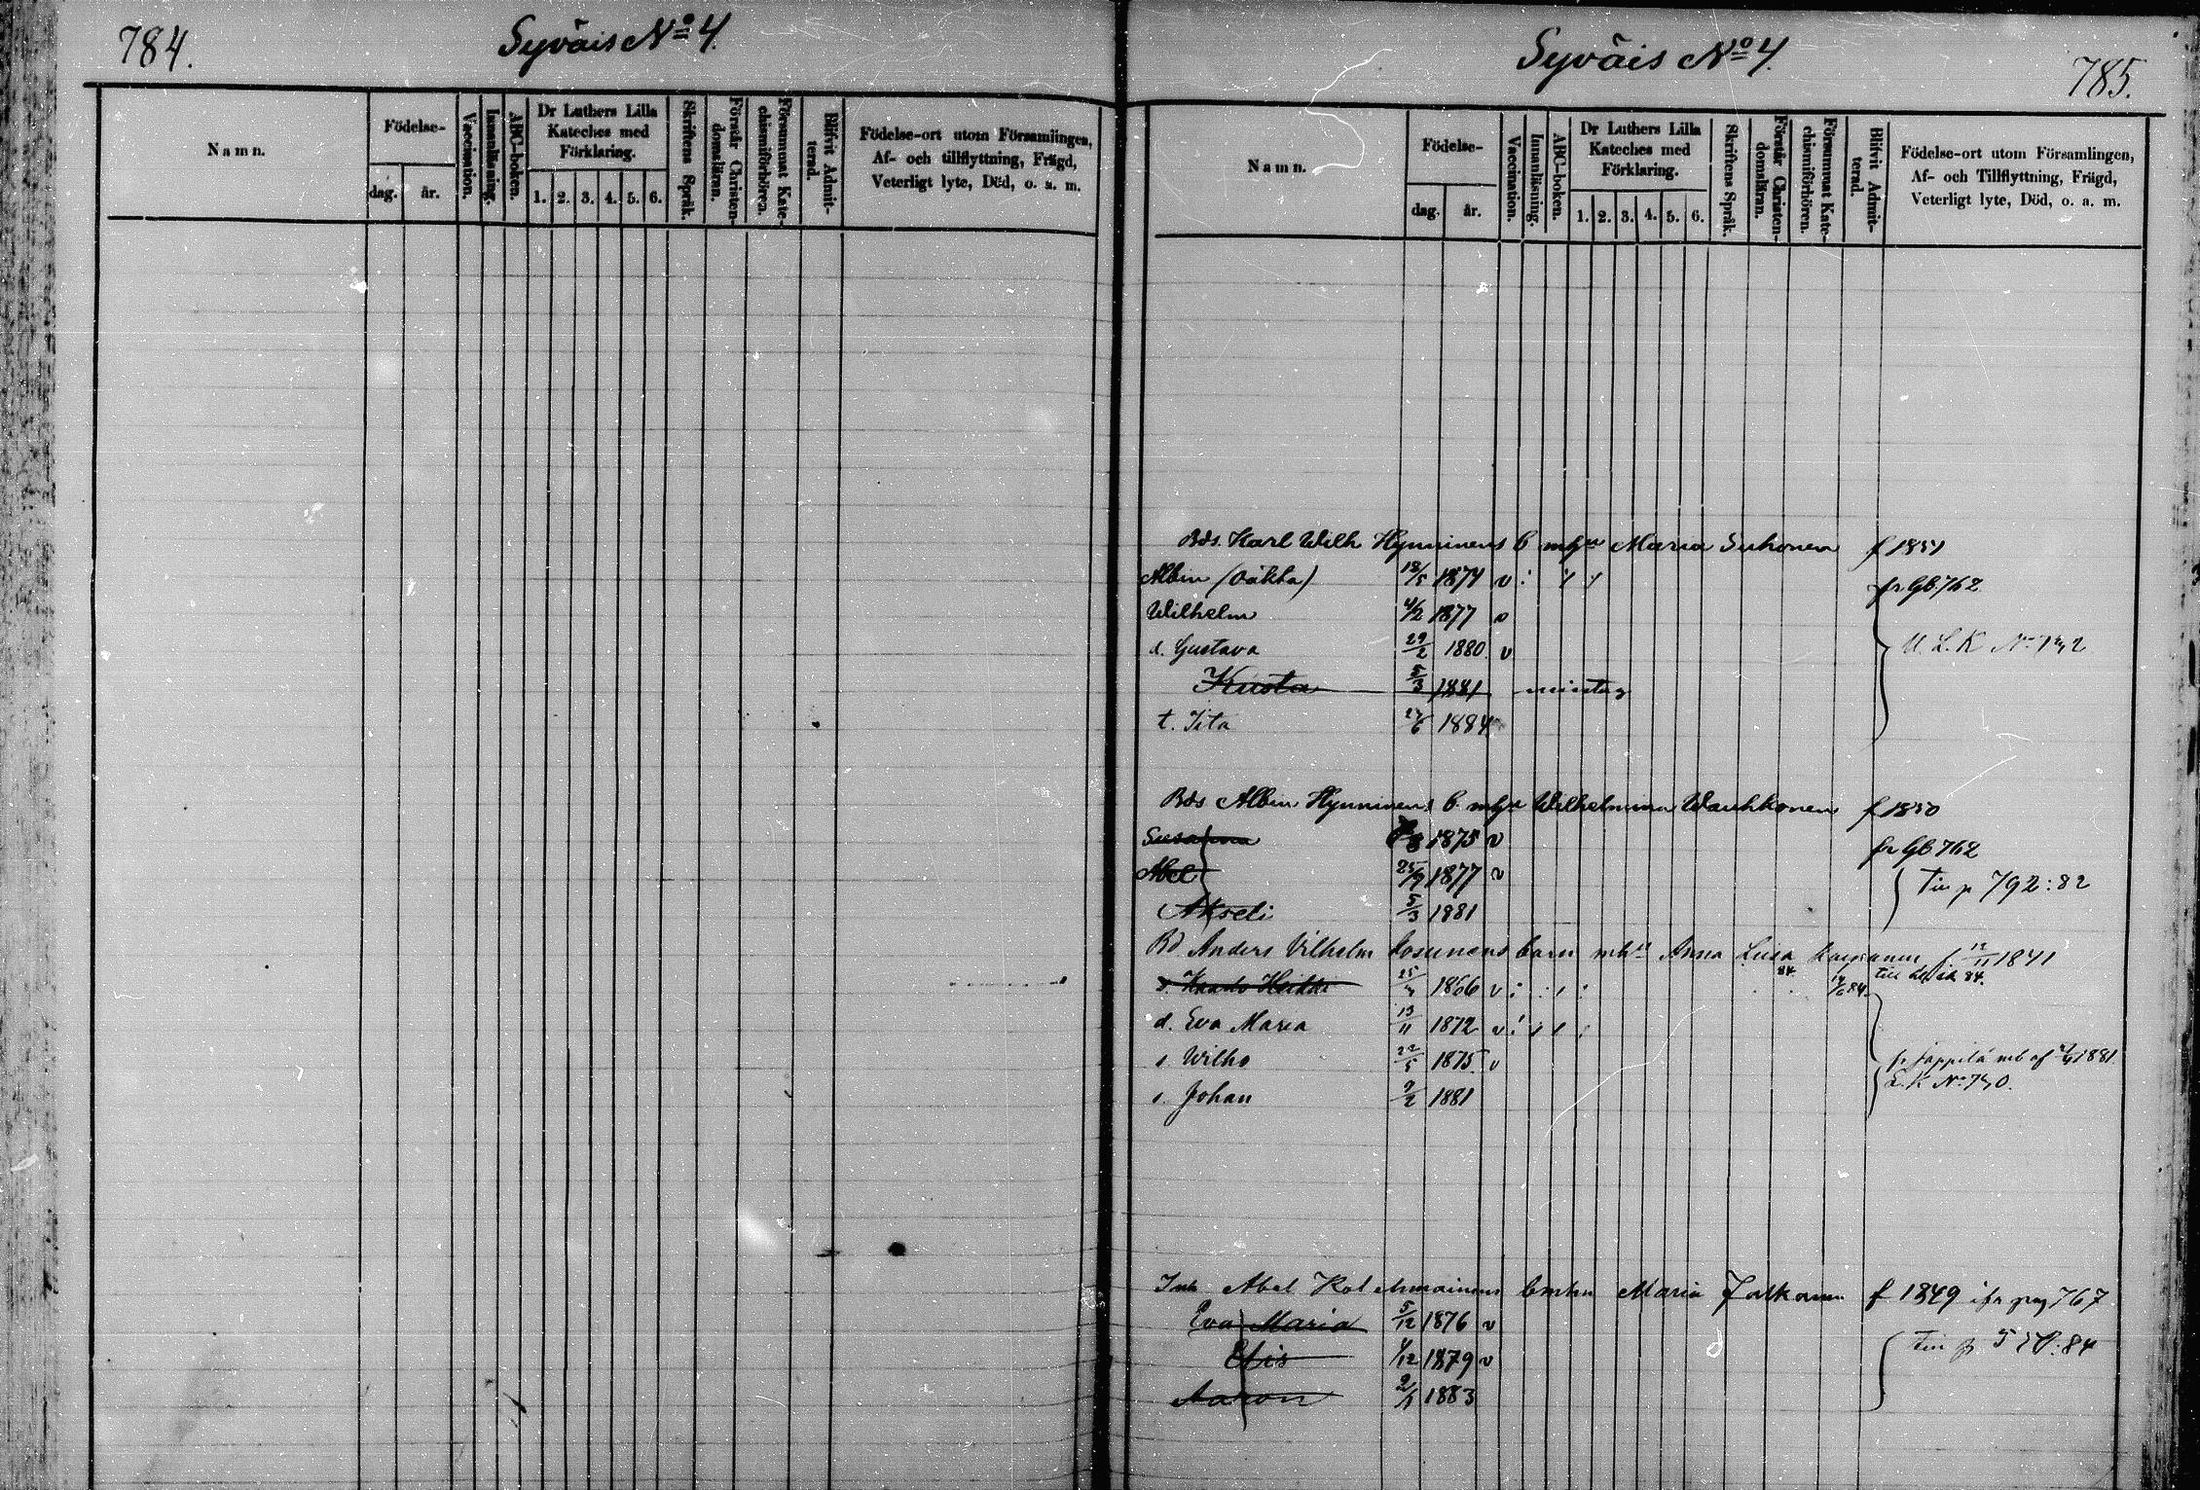 784.
Syväis No 4.
Namn.
Födelse-
dag.
år.
Vaccination.
Innanläsning.
ABC-boken.
Dr Luthers Lilla
Kateches med
Förklaring.
1. 2. 3. 4. 5. 6.
Skriftens Språk.
Förstår Christen-
domsläran.
Försummat Kate-
chismiförhören.
Blifvit Admit-
terad.
Födelse-ort utom Församlingen,
Af- och tillflyttning, Frägd,
Veterligt lyte, Död, o. a. m.
Syväis No 4.
785.
Namn.
Födelse-
dag.
år.
Vaccination.
Innanläsning.
ABC-boken.
Dr Luthers Lilla
Kateches med
Förklaring.
1. 2. 3. 4. 5. 6.
Skriftens Språk.
Förstår Christen-
domsläran.
Försummat Kate-
chismiförhören.
Blifvit Admit-
terad.
Födelse-ort utom Församlingen,
Af- och Tillflyttning, Frägd,
Veterligt lyte, Död, o. a. m.
Bds. Karl Wilh Hynninens b mhu Maria Suhonen f 1851
Albin 18/5 1874 v fr. Gb. 762
Wilhelm 4/2 1877 v
d. Gustava 29/2 1880 v
Kusta 5/3 1881
t. Iita 1884
Bds Albin Hynninens b. mhu Wilhelmina Wauhkonen f 1850
Susanna 1875 v fr Gb 762
Abel 25/9 1877 v
Akseli 5/3 1881 792:82
Bd. Anders Vilhelm Kosunens barn mhu Anna Luisa f 12/11 1841
Heikki 1866 v
d. Eva Maria 13/11 1872 v
s. Wilho 22/5 1875 v
fr Jäppilä mb af 1881
s. Johan 9/2 1881
L.K No 740.
Inh Abel Kolehmainens bmhu Maria f 1849 767
Eva Maria 5/12 1876 v
Elis 1/12 1879 v
Aaron 1883